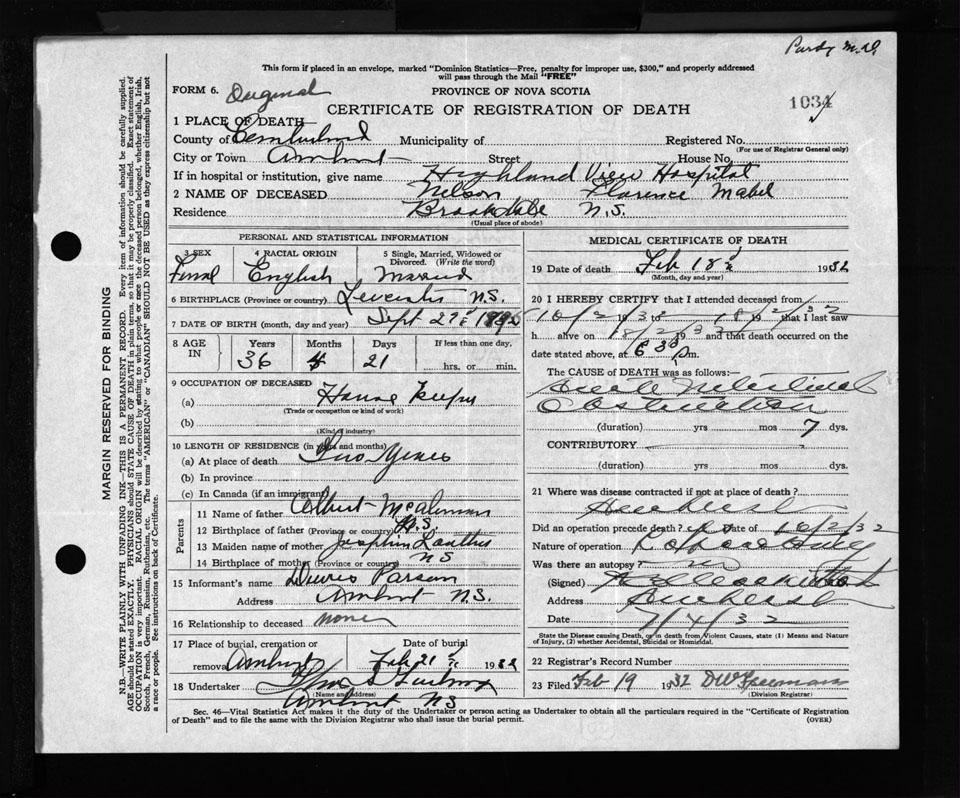 Purdy M.D.
This form if placed in an envelope, marked "Dominion Statistics—Free, penalty for improper use, $300," and properly addressed
will pass through the Mail "FREE"
FORM 6. Original PROVINCE OF NOVA SCOTIA
CERTIFICATE OF REGISTRATION OF DEATH 1034
1 PLACE OF DEATH
County of Cumberland Municipality of Registered No.
(For use of Registrar General only)
City or Town Amherst Street House No.
If in hospital or institution, give name Highland View Hospital
2 NAME OF DECEASED Nelson Florence Mabel
Residence Brookdale N.S.
(Usual place of abode)
PERSONAL AND STATISTICAL INFORMATION
3 SEX 4 RACIAL ORIGIN 5 Single, Married, Widowed or Divorced. (Write the word)
Femal English Married
6 BIRTHPLACE (Province or country) Leicester N.S.
7 DATE OF BIRTH (month, day and year) Sept 27
8 AGE IN Years Months Days If less than one day,
36 4 21 hrs. or min.
9 OCCUPATION OF DECEASED
(a) House Keeper
(Trade or occupation or kind of work)
(b)
(Kind of industry)
10 LENGTH OF RESIDENCE (in years and months)
(a) At place of death Two
(b) In province
(c) In Canada (if an immigrant)
Parents
11 Name of father Albert
12 Birthplace of father (Province or country) N.S.
13 Maiden name of mother
14 Birthplace of mother (Province or country) N S
15 Informant's name Parson
Address Amherst N.S.
16 Relationship to deceased none
17 Place of burial, cremation or removal Amherst Date of burial Feb 21 1932
18 Undertaker
(Name and address)
Amherst N S
MEDICAL CERTIFICATE OF DEATH
19 Date of death Feb 18 1932
(Month, day and year)
20 I HEREBY CERTIFY that I attended deceased from
10/2/32 to 18/2/32 that I last saw
h alive on 18/2/32 and that death occurred on the
date stated above, at 6 30 p.m.
The CAUSE of DEATH was as follows:
Acute Intestinal
Obstruction
(duration) yrs mos 7 dys.
CONTRIBUTORY
(duration) yrs mos dys.
21 Where was disease contracted if not at place of death?
Amherst
Did an operation precede death? Date of 10/2/32
Nature of operation Laparotomy
Was there an autopsy? no
(Signed)
Address Amherst
Date
State the Disease causing Death, or in death from Violent Causes, state (1) Means and Nature
of Injury, (2) whether Accidental, Suicidal or Homicidal.
22 Registrar's Record Number
23 Filed Feb 19 1932
(Division Registrar)
Sec. 46—Vital Statistics Act makes it the duty of the Undertaker or person acting as Undertaker to obtain all the particulars required in the "Certificate of Registration
of Death" and to file the same with the Division Registrar who shall issue the burial permit. (OVER)
MARGIN RESERVED FOR BINDING
N.B.—WRITE PLAINLY WITH UNFADING INK—THIS IS A PERMANENT RECORD. Every item of information should be carefully supplied.
AGE should be stated EXACTLY. PHYSICIANS should STATE CAUSE OF DEATH in plain terms, so that it may be properly classified. Exact statement of
OCCUPATION is very important. RACIAL ORIGIN will be described by stating to what people or race the deceased person belonged, whether English, Irish,
Scotch, French, German, Russian, Ruthenian, etc. The terms "AMERICAN" or "CANADIAN" SHOULD NOT BE USED as they express citizenship but not
a race or people. See instructions on back of Certificate.